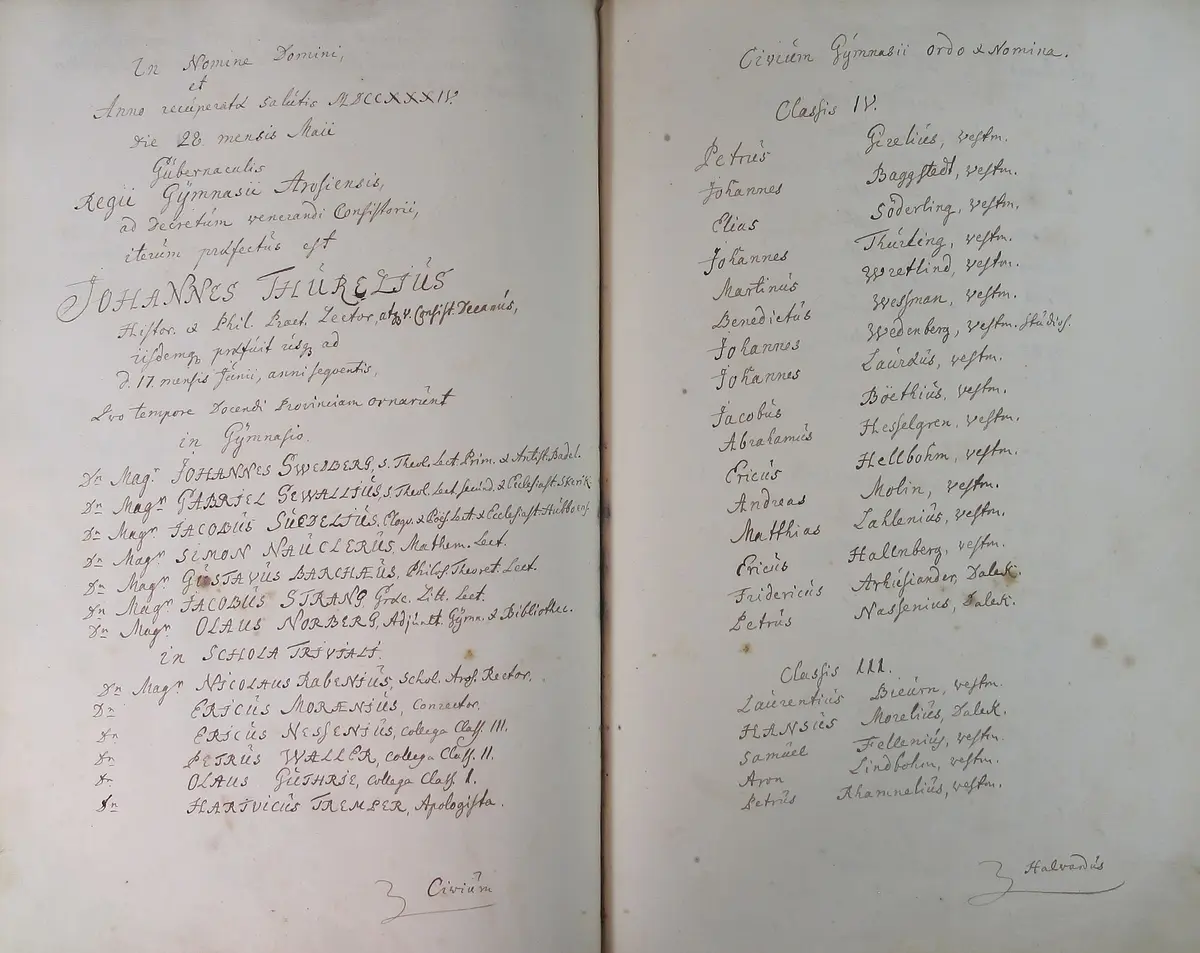 In Nomine Domini,
et
Anno recúperatæ salútis MDCCXXXIV.
Die 28 mensis Maii
Gúbernaculis
Regii Gÿmnasii Arosiensis,
ad Decretúm venerandi Consistorii,
iterúm præfectús est
JOHANNES THÚRELIÚS
Histor. & Phil. Pract. Lector, atqꝫ v. Consist. Decanús,
iisdemqꝫ præfúit úsqꝫ ad
d. 17. mensis Júnii, anni seqventis,
Qvo tempore Docendi Provinciam ornarúnt
in Gÿmnasio.
Dn Magr JOHANNES SWEDBERG, S. Theol. Lect. Prim. & Antist. Badel.
Dn Magr GABRIEL SEWALLIÚS, S. Theol. Lect. secúnd. & Ecclesiast. Skerik.
Dn Magr JACOBÚS SÚEDELIÚS, Eloqv. & Poës. Lect. & Ecclesiast. Húbboens.
Dn Magr SIMON NAÚCLERÚS, Mathem. Lect.
Dn Magr GÚSTAVÚS BARCHÆÚS, Philos. Theoret. Lect.
Dn Magr JACOBÚS STRANG, Græc. Litt. Lect.
Dn Magr OLAUS NORBERG, Adjúnct. Gÿmn. & Bibliothec.
in SCHOLA TRIVIALI.
Dn Magr NICOLAUS RabENIÚS, Schol. Aros. Rector.
Dn ERICÚS MORÆNIÚS, Conrector.
Dn ERICÚS NESSENIÚS, collega Class. III.
Dn PETRÚS WALLER, collega Class. II.
Dn OLAUS GÚTHRIE, collega Class. I.
Dn HARTVICÚS TREMPER, Apologista.
Civiúm
Civiúm Gÿmnasii ordo & Nomina.
Classis IV.
Petrús Girelius, vestm.
Johannes Baggstadt, vestm.
Elias Söderling, vestm.
Johannes Thúrling, vestm.
Martinús Wretlind, vestm.
Benedictús Wessman, vestm.
Johannes Wedenberg, vestm. Stúdios.
Johannes Laúræús, vestm.
Jacobús Böethiús, vestm.
Abrahamús Hesselgren, vestm.
Ericús Hellbohm, vestm.
Andreas Molin, vestm.
Matthias Lahleniús, vestm.
Ericús Hallnberg, vestm.
Fridericús Arhúsiander, Dalek.
Petrús Nassenius, Dalek.
Classis III.
Laúrentiús Bieúrn, vestm.
HANSIÚS Moreliús, Dalek.
Samúel Felleniús, vestm.
Aron Lindbohm, vestm.
Petrús Rhamneliús, vestm.
Halvardús